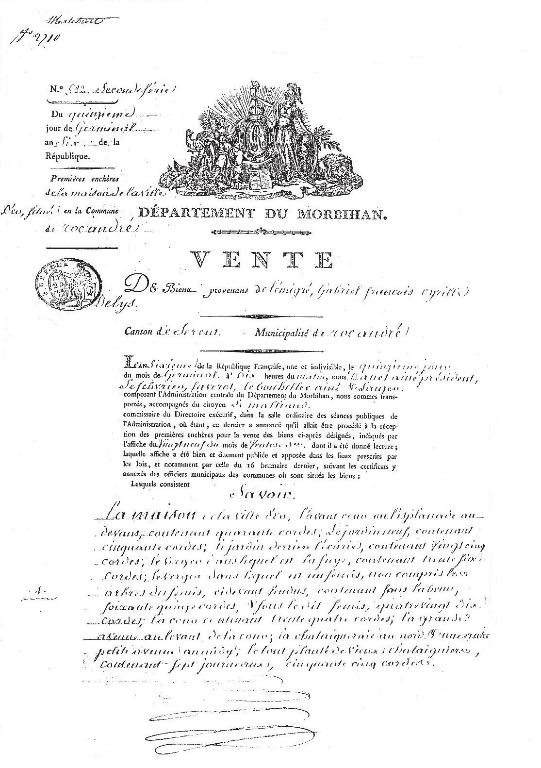 N.º 522 Seconde série
Du quinzieme
jour de Germinal
an Six de la
République.
Premières enchères
de la maison de la ville
D'éo, située en la Commune
de rocaudre
DÉPARTEMENT DU MORBIHAN.
VENTE
DE Biens provenans de l'émigré, Gabriel françois cyrille
Delys.
Canton de Serent. Municipalité de rocaudré
L'an Sixieme de la République Française, une et indivisible, le quinzieme jour
du mois de Germinal à dix heures du matin, nous
composant l'Administration centrale du Département du Morbihan, nous sommes trans-
portés, accompagnés du citoyen
commissaire du Directoire exécutif, dans la salle ordinaire des séances publiques de
l'Administration, où étant, ce dernier a annoncé qu'il allait être procédé à la récep-
tion des premières enchères pour la vente des biens ci-après désignés, indiqués par
l'affiche du vingt neuf du mois de Ventose dr. dont il a été donné lecture;
laquelle affiche a été bien et duement publiée et apposée dans les lieux prescrits
par les lois, et notamment par celle du 16 brumaire dernier, suivant les certificats y
annexés des officiers municipaux des communes où sont situés les biens;
Lesquels consistent
Savoir.
La maison de la ville d'éo, l'avant cour ou l'esplanade au
devant, contenant quarante cordes; le jardin neuf, contenant
cinquante cordes; le jardin derriere l'écurie, contenant vingt cinq
cordes; le verger dans lequel est la fuye, contenant trente six
cordes; le verger dans lequel est un fennis, non compris les
arbres du fennis, cidevant fendus, contenant sous labour,
soixante quinze cordes, & sous le dit fennis, quatre vingt dix
cordes; la cour contenant trente quatre cordes; la grande
avenue au levant de la cour; la chataigneraie au nord & une autre
petite avenue, le tout planté de vieux chataigniers,
Contenant sept journeaux, cinquante cinq cordes.